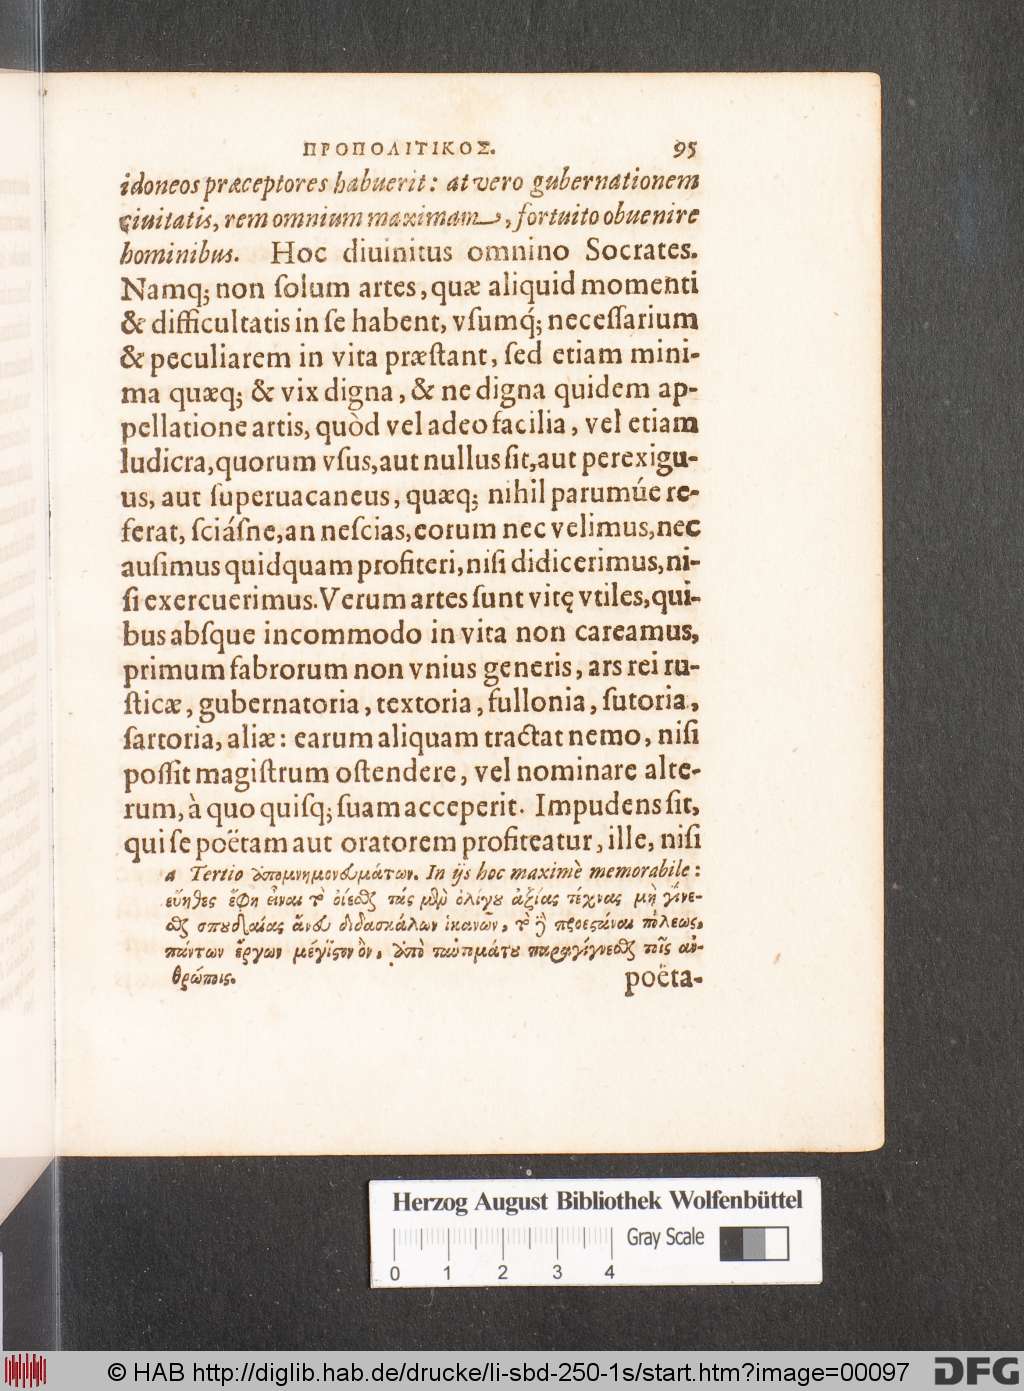 ΠΡΟΠΟΛΙΤΙΚΟΣ. 95
idoneos præceptores habuerit: at vero gubernationem
ciuitatis, rem omnium maximam, fortuito obuenire
hominibus. Hoc diuinitus omnino Socrates.
Namq; non ſolum artes, quæ aliquid momenti
& difficultatis in ſe habent, vſumq́; neceſſarium
& peculiarem in vita præſtant, ſed etiam mini-
ma quæq; & vix digna, & ne digna quidem ap-
pellatione artis, quòd vel adeo facilia, vel etiam
ludicra, quorum vſus, aut nullus ſit, aut perexigu-
us, aut ſuperuacaneus, quæq; nihil parumúe re-
ferat, ſciáſne, an neſcias, eorum nec velimus, nec
auſimus quidquam profiteri, niſi didicerimus, ni-
ſi exercuerimus. Verum artes ſunt vitę vtiles, qui-
bus abſque incommodo in vita non careamus,
primum fabrorum non vnius generis, ars rei ru-
ſticæ, gubernatoria, textoria, fullonia, ſutoria,
ſartoria, aliæ: earum aliquam tractat nemo, niſi
poſſit magiſtrum oſtendere, vel nominare alte-
rum, à quo quiſq; ſuam acceperit. Impudens ſit,
qui ſe poëtam aut oratorem profiteatur, ille, niſi
a Tertio ἀπομνημονευμάτων. In ijs hoc maximè memorabile:
εὔηθες ἔφη εἶναι τὸ οἴεσθαι τὰς μὲν ὀλίγου ἀξίας τέχνας μὴ γίνε-
σθαι σπουδαίας ἄνευ διδασκάλων ἱκανῶν, τὸ δὲ προεστάναι πόλεως,
πάντων ἔργων μέγιστον ὂν, ἀπὸ ταὐτομάτου παραγίγνεσθαι τοῖς ἀν-
θρώποις. poëta-
Herzog August Bibliothek Wolfenbüttel
Gray Scale
0 1 2 3 4
© HAB http://diglib.hab.de/drucke/li-sbd-250-1s/start.htm?image=00097 DFG